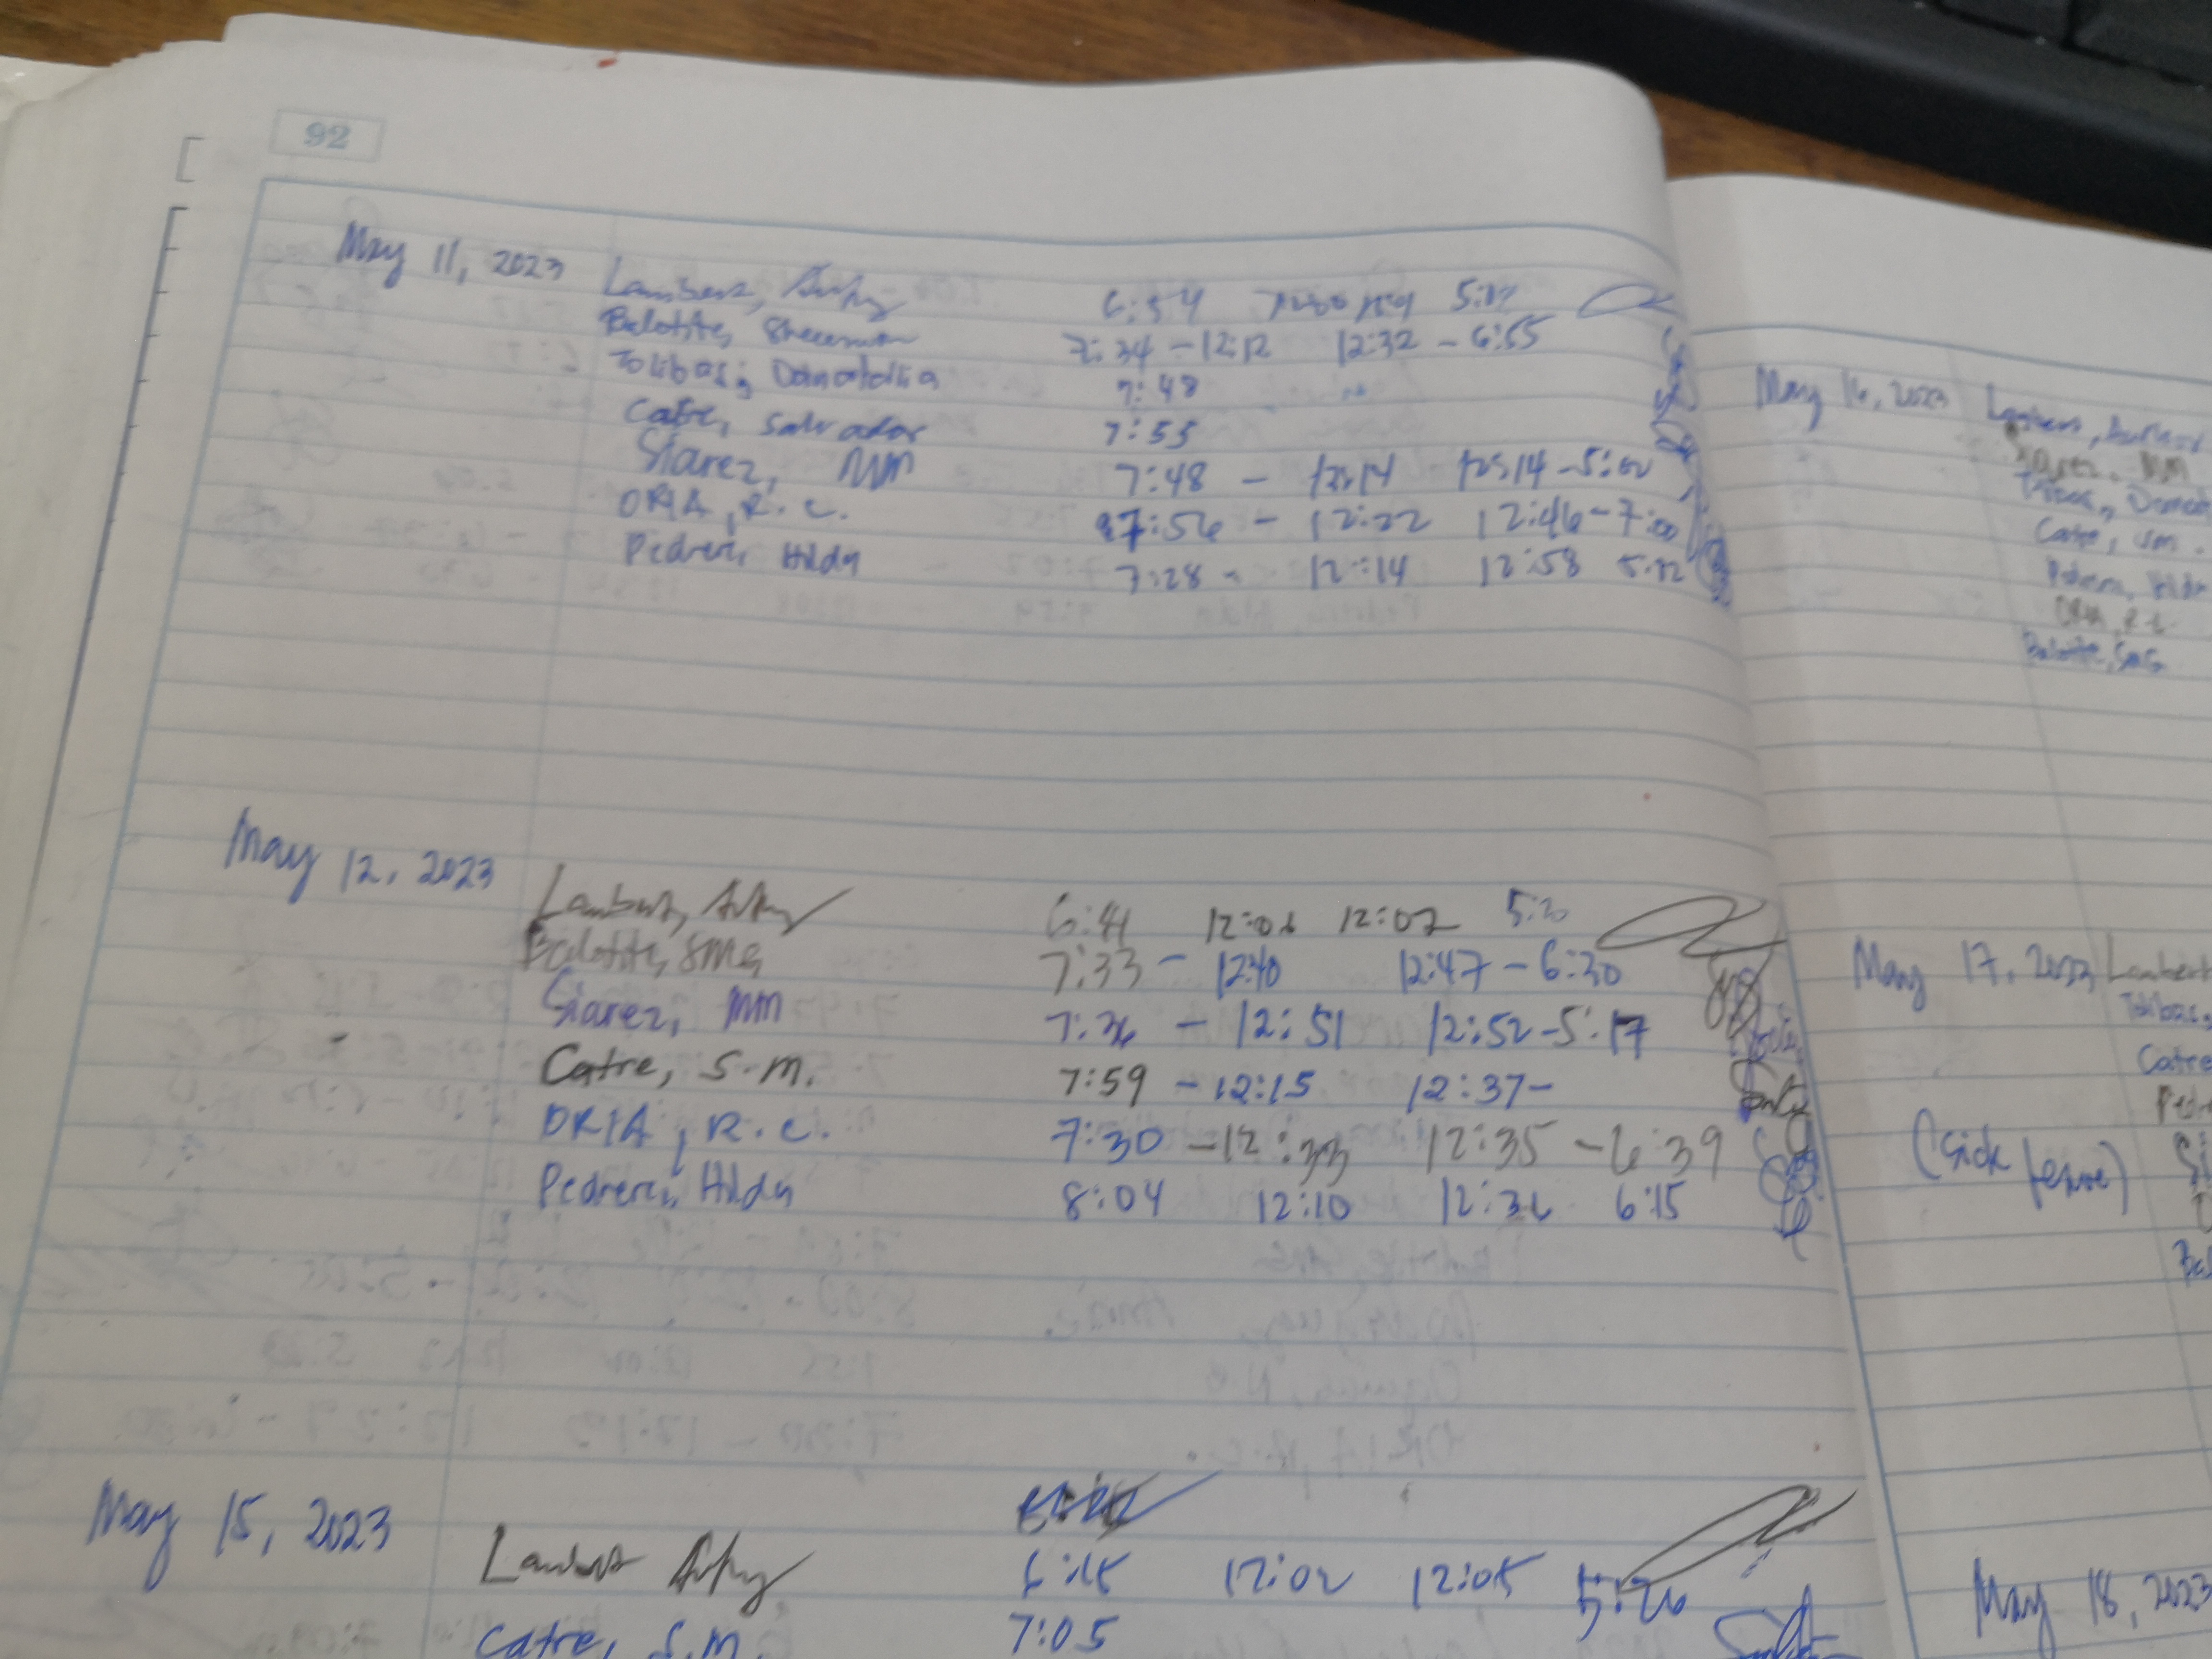 92
May 11, 2023 Lambert, 6:54 5:17
Balotite, 7:34 - 12:12 12:32 - 6:55
Tolibas, Donatolia 7:48
Catre, Salvador 7:55
Siarez, MM 7:48 - 12:14 12:14 - 5:02
ORIA, R. C. 7:56 - 12:22 12:46 - 7:00
Pedrera, Hilda 7:28 - 12:14 12:58 5:12
May 12, 2023 Lambert, 6:41 12:01 12:02 5:20
Balotite, SMG 7:33 - 12:40 12:47 - 6:30
Siarez, MM 7:36 - 12:51 12:52 - 5:17
Catre, S.M. 7:59 - 12:15 12:37 -
ORIA, R. C. 7:30 - 12:33 12:35 - 6:39
Pedrera, Hilda 8:04 12:10 12:36 6:15
May 15, 2023
Lambert 6:45 12:02 12:05 5:26
Catre, S.M. 7:05
May 16, 2023 Lambert,
Siarez, MM
Tolibas, Donat
Catre, SM.
Pedrera, Hilda
ORIA, R.C.
Balotite, SMG
May 17, 2023 Lambert
Tolibas,
Catre
Pedr
(Sick leave) Si
Bal
May 18, 2023